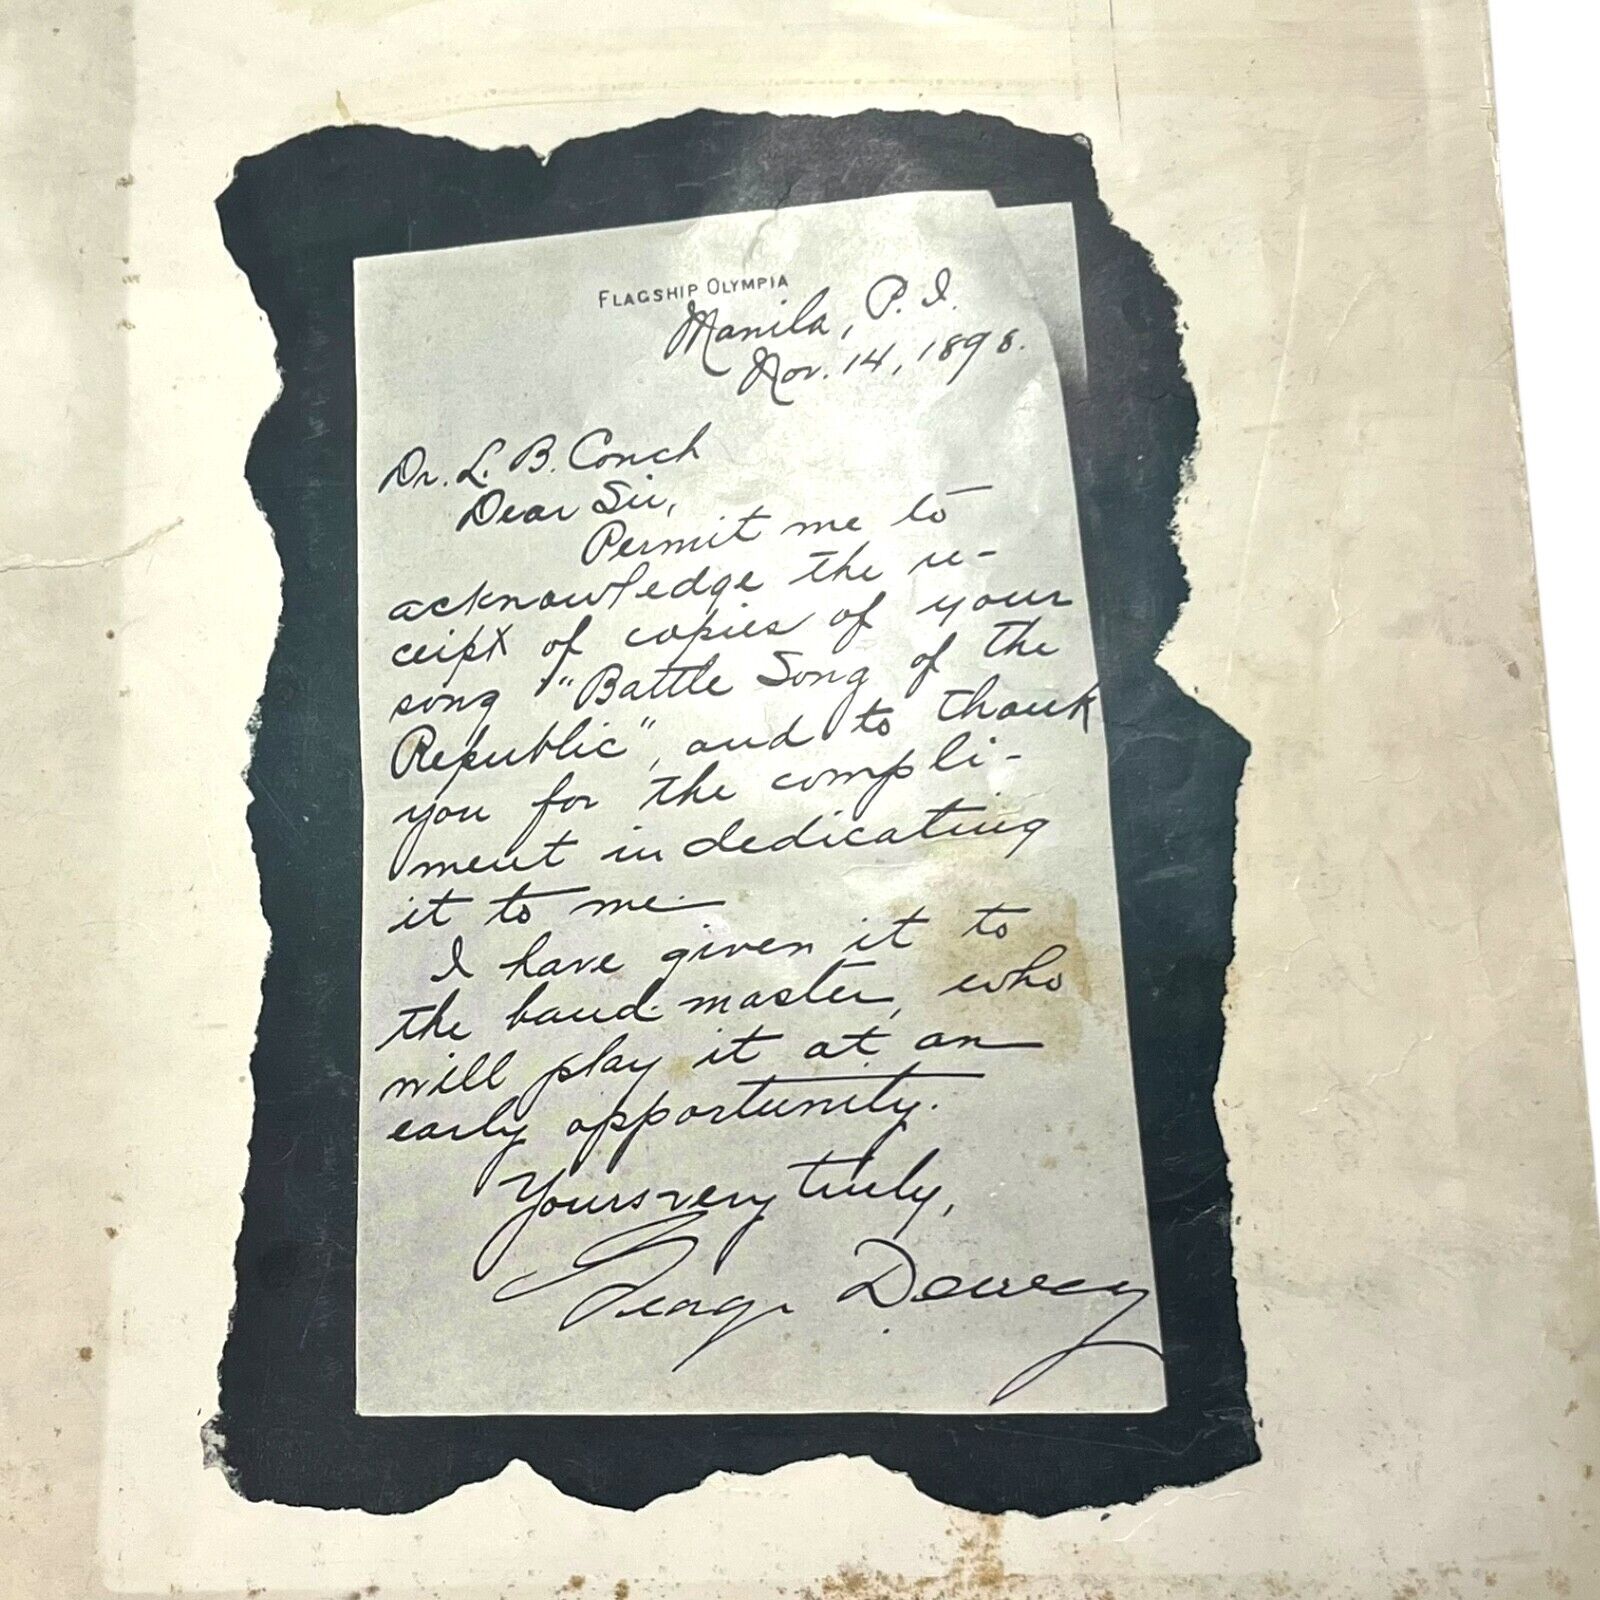 FLAGSHIP OLYMPIA
Manila, P. I.
Nov. 14, 1898.
Dr. L. B. Couch
Dear Sir,
Permit me to
acknowledge the re-
ceipt of copies of your
song "Battle Song of the
Republic", and to thank
you for the compli-
ment in dedicating
it to me.
I have given it to
the band master, who
will play it at an
early opportunity.
Yours very truly,
George Dewey